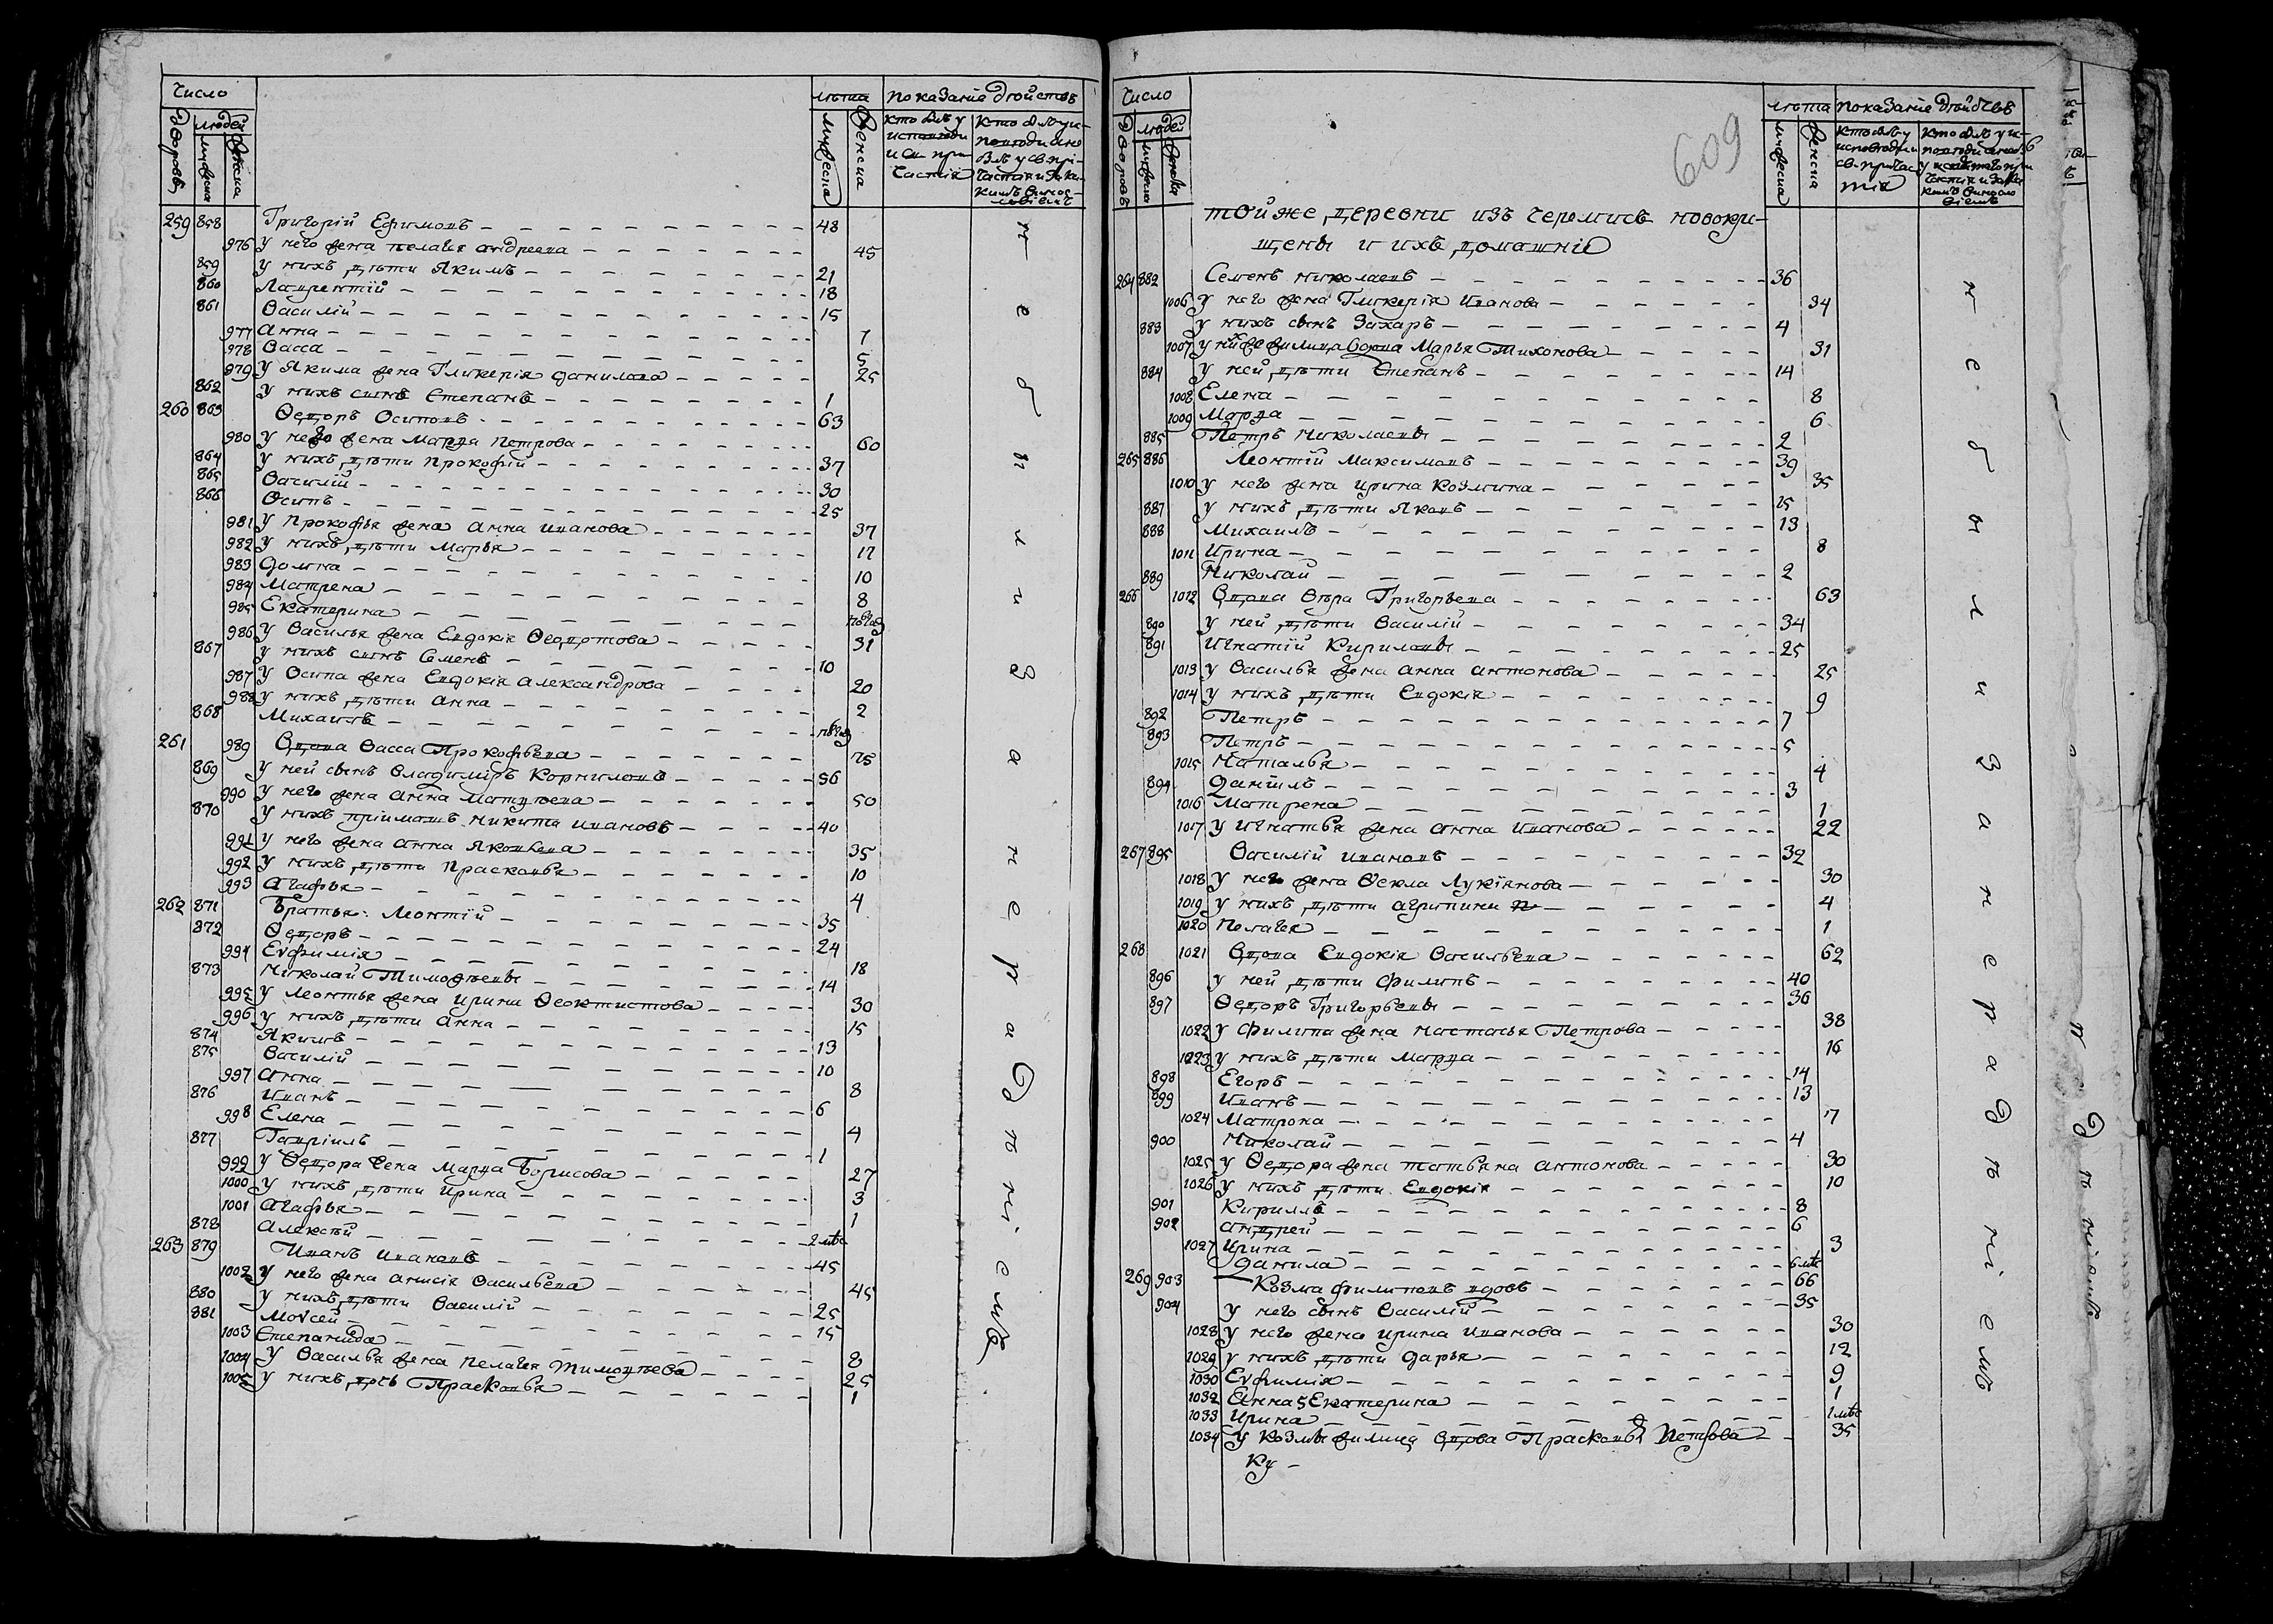 Число
лѣта показаніе дѣйствъ
дворовъ людей мужеска женска
мужеска женска
кто былъ у исповѣди и св. причастія
кто былъ у исповѣди а не былъ у св. причастія и за какимъ винословіемъ
259 858 Григорій Ефимовъ 48
976 у него жена пелагея андреева 45
859 у нихъ дѣти Якимъ 21
860 Лаврентій 18
861 Василій 15
977 Анна 7
978 Васса 5
979 у Якима жена Гликерія данилова 25
862 у нихъ сынъ Степанъ 1
260 863 Ѳедоръ Осиповъ 63
980 у него жена Марѳа Петрова 60
864 у нихъ дѣти Прокофій 37
865 Василій 30
866 Осипъ 25
981 у Прокофья жена Анна Иванова 37
982 у нихъ дѣти Марья 17
983 Домна 10
984 Матрена 8
985 Екатерина
986 у Василья жена Евдокія Ѳедотова 31
867 у нихъ сынъ Семенъ 10
987 у Осипа жена Евдокія Александрова 20
988 у нихъ дѣти Анна 2
868 Михаилъ
261 989 Вдова Васса Прокофьева 75
869 у ней сынъ Владимиръ Корниловъ 56
990 у него жена Анна Матвѣева 50
870 у нихъ пріимышъ Никита Ивановъ 40
991 у него жена Анна Яковлева 35
992 у нихъ дѣти Прасковья 10
993 Агафья 4
262 871 Братья: Леонтій 35
872 Ѳедоръ 24
994 Евфимія 18
873 Николай Тимоѳеевы 14
995 у Леонтья жена Ирина Ѳеоктистова 30
996 у нихъ дѣти Анна 15
874 Якимъ 13
875 Василій 10
997 Анна 8
876 Иванъ 6
998 Елена 4
877 Гавріилъ 1
999 у Ѳедора жена Марѳа Борисова 27
1000 у нихъ дѣти Ирина 3
1001 Агафья 1
878 Алексѣй 2 мѣс
263 879 Иванъ Ивановъ 45
1002 у него жена Анисія Васильева 45
880 у нихъ дѣти Василій 25
881 Мовсей 15
1003 Степанида 8
1004 у Василья жена Пелагея Тимоѳеева 25
1005 у нихъ дочь Прасковья 1
небыли за нерадѣніемъ
609
Число
лѣта показаніе дѣйствъ
дворовъ людей мужеска женска
мужеска женска
кто былъ у исповѣди и св. причастія
той же деревни изъ черемисъ новокрещены и ихъ домашніе
264 882 Семенъ Николаевъ 36
1006 у него жена Гликерія Иванова 34
883 у нихъ сынъ Захаръ 4
1007 Вдова Марья Тихонова 31
884 у ней дѣти Степанъ 14
1008 Елена 8
1009 Марѳа 6
885 Петръ Николаевы 2
265 886 Леонтій Максимовъ 39
1010 у него жена Ирина Козмина 35
887 у нихъ дѣти Яковъ 15
888 Михаилъ 13
1011 Ирина 8
889 Николай 2
266 1012 Вдова Вѣра Григорьева 63
890 у ней дѣти Василій 34
891 Игнатій Кириловы 25
1013 у Василья жена Анна Антонова 25
1014 у нихъ дѣти Евдокія 9
892 Петръ 7
893 Петръ 5
1015 Наталья 4
894 Даніилъ 3
1016 Матрена 1
1017 у Игнатья жена Анна Иванова 22
267 895 Василій Ивановъ 32
1018 у него жена Ѳекла Лукіянова 30
1019 у нихъ дѣти Агрипина 4
1020 Пелагея 1
268 1021 Вдова Евдокія Васильева 62
896 у ней дѣти Филипъ 40
897 Ѳедоръ Григорьевы 36
1022 у Филипа жена Настасья Петрова 38
1023 у нихъ дѣти Марѳа 16
898 Егоръ 14
899 Иванъ 13
1024 Матрона 7
900 Николай 4
1025 у Ѳедора жена Татьяна Антонова 30
1026 у нихъ дѣти Евдокія 10
901 Кириллъ 8
902 Андрей 6
1027 Ирина 3
Данила 6 мѣс
269 903 Козма Филиповъ вдовъ 66
904 у него сынъ Василій 35
1028 у него жена Ирина Иванова 30
1029 у нихъ дѣти Дарья 12
1030 Евфимія 9
1032 Анна Екатерина 1
1033 Ирина 1 мѣс
1034 у Козмы Вдова Прасковья Петрова 35
ку
небыли за нерадѣніемъ